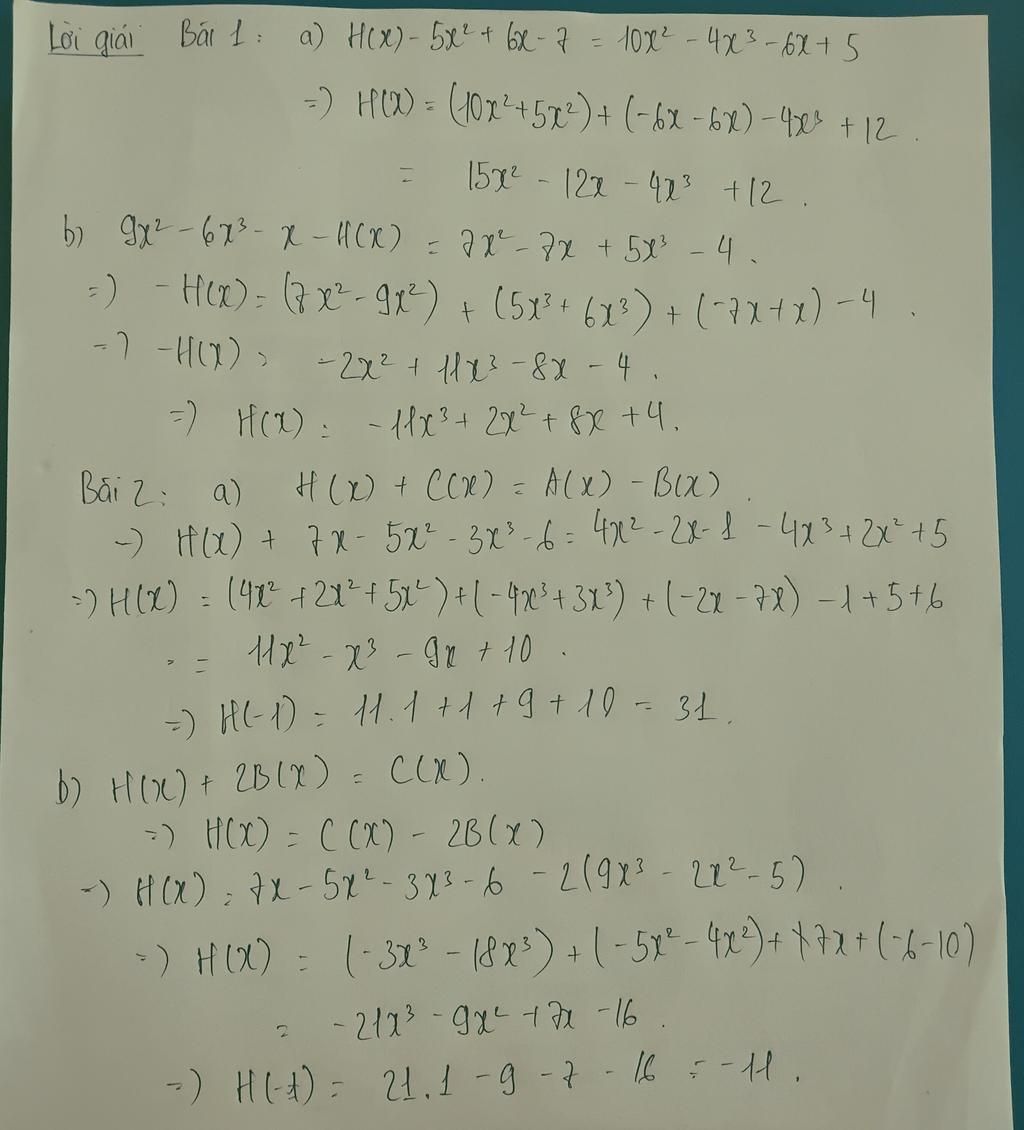 Lời giải Bài 1: a) H(x) - 5x² + 6x - 7 = 10x² - 4x³ - 6x + 5
=) H(x) = (10x² + 5x²) + (-6x - 6x) - 4x³ + 12.
= 15x² - 12x - 4x³ + 12.
b) 9x² - 6x³ - x - H(x) = 7x² - 7x + 5x³ - 4.
=) - H(x) = (7x² - 9x²) + (5x³ + 6x³) + (-7x + x) - 4.
=) - H(x) = -2x² + 11x³ - 8x - 4.
=) H(x) = -11x³ + 2x² + 8x + 4.
Bài 2: a) H(x) + C(x) = A(x) - B(x).
=) H(x) + 7x - 5x² - 3x³ - 6 = 4x² - 2x - 1 - 4x³ + 2x² + 5
=) H(x) = (4x² + 2x² + 5x²) + (-4x³ + 3x³) + (-2x - 7x) - 1 + 5 + 6
= 11x² - x³ - 9x + 10.
=) H(-1) = 11.1 + 1 + 9 + 10 = 31.
b) H(x) + 2B(x) = C(x).
=) H(x) = C(x) - 2B(x)
=) H(x) = 7x - 5x² - 3x³ - 6 - 2(9x³ - 2x² - 5).
=) H(x) = (-3x³ - 18x³) + (-5x² - 4x²) + 7x + (-6 - 10)
= -21x³ - 9x² + 7x - 16.
=) H(-1) = 21.1 - 9 - 7 - 16 = -11.